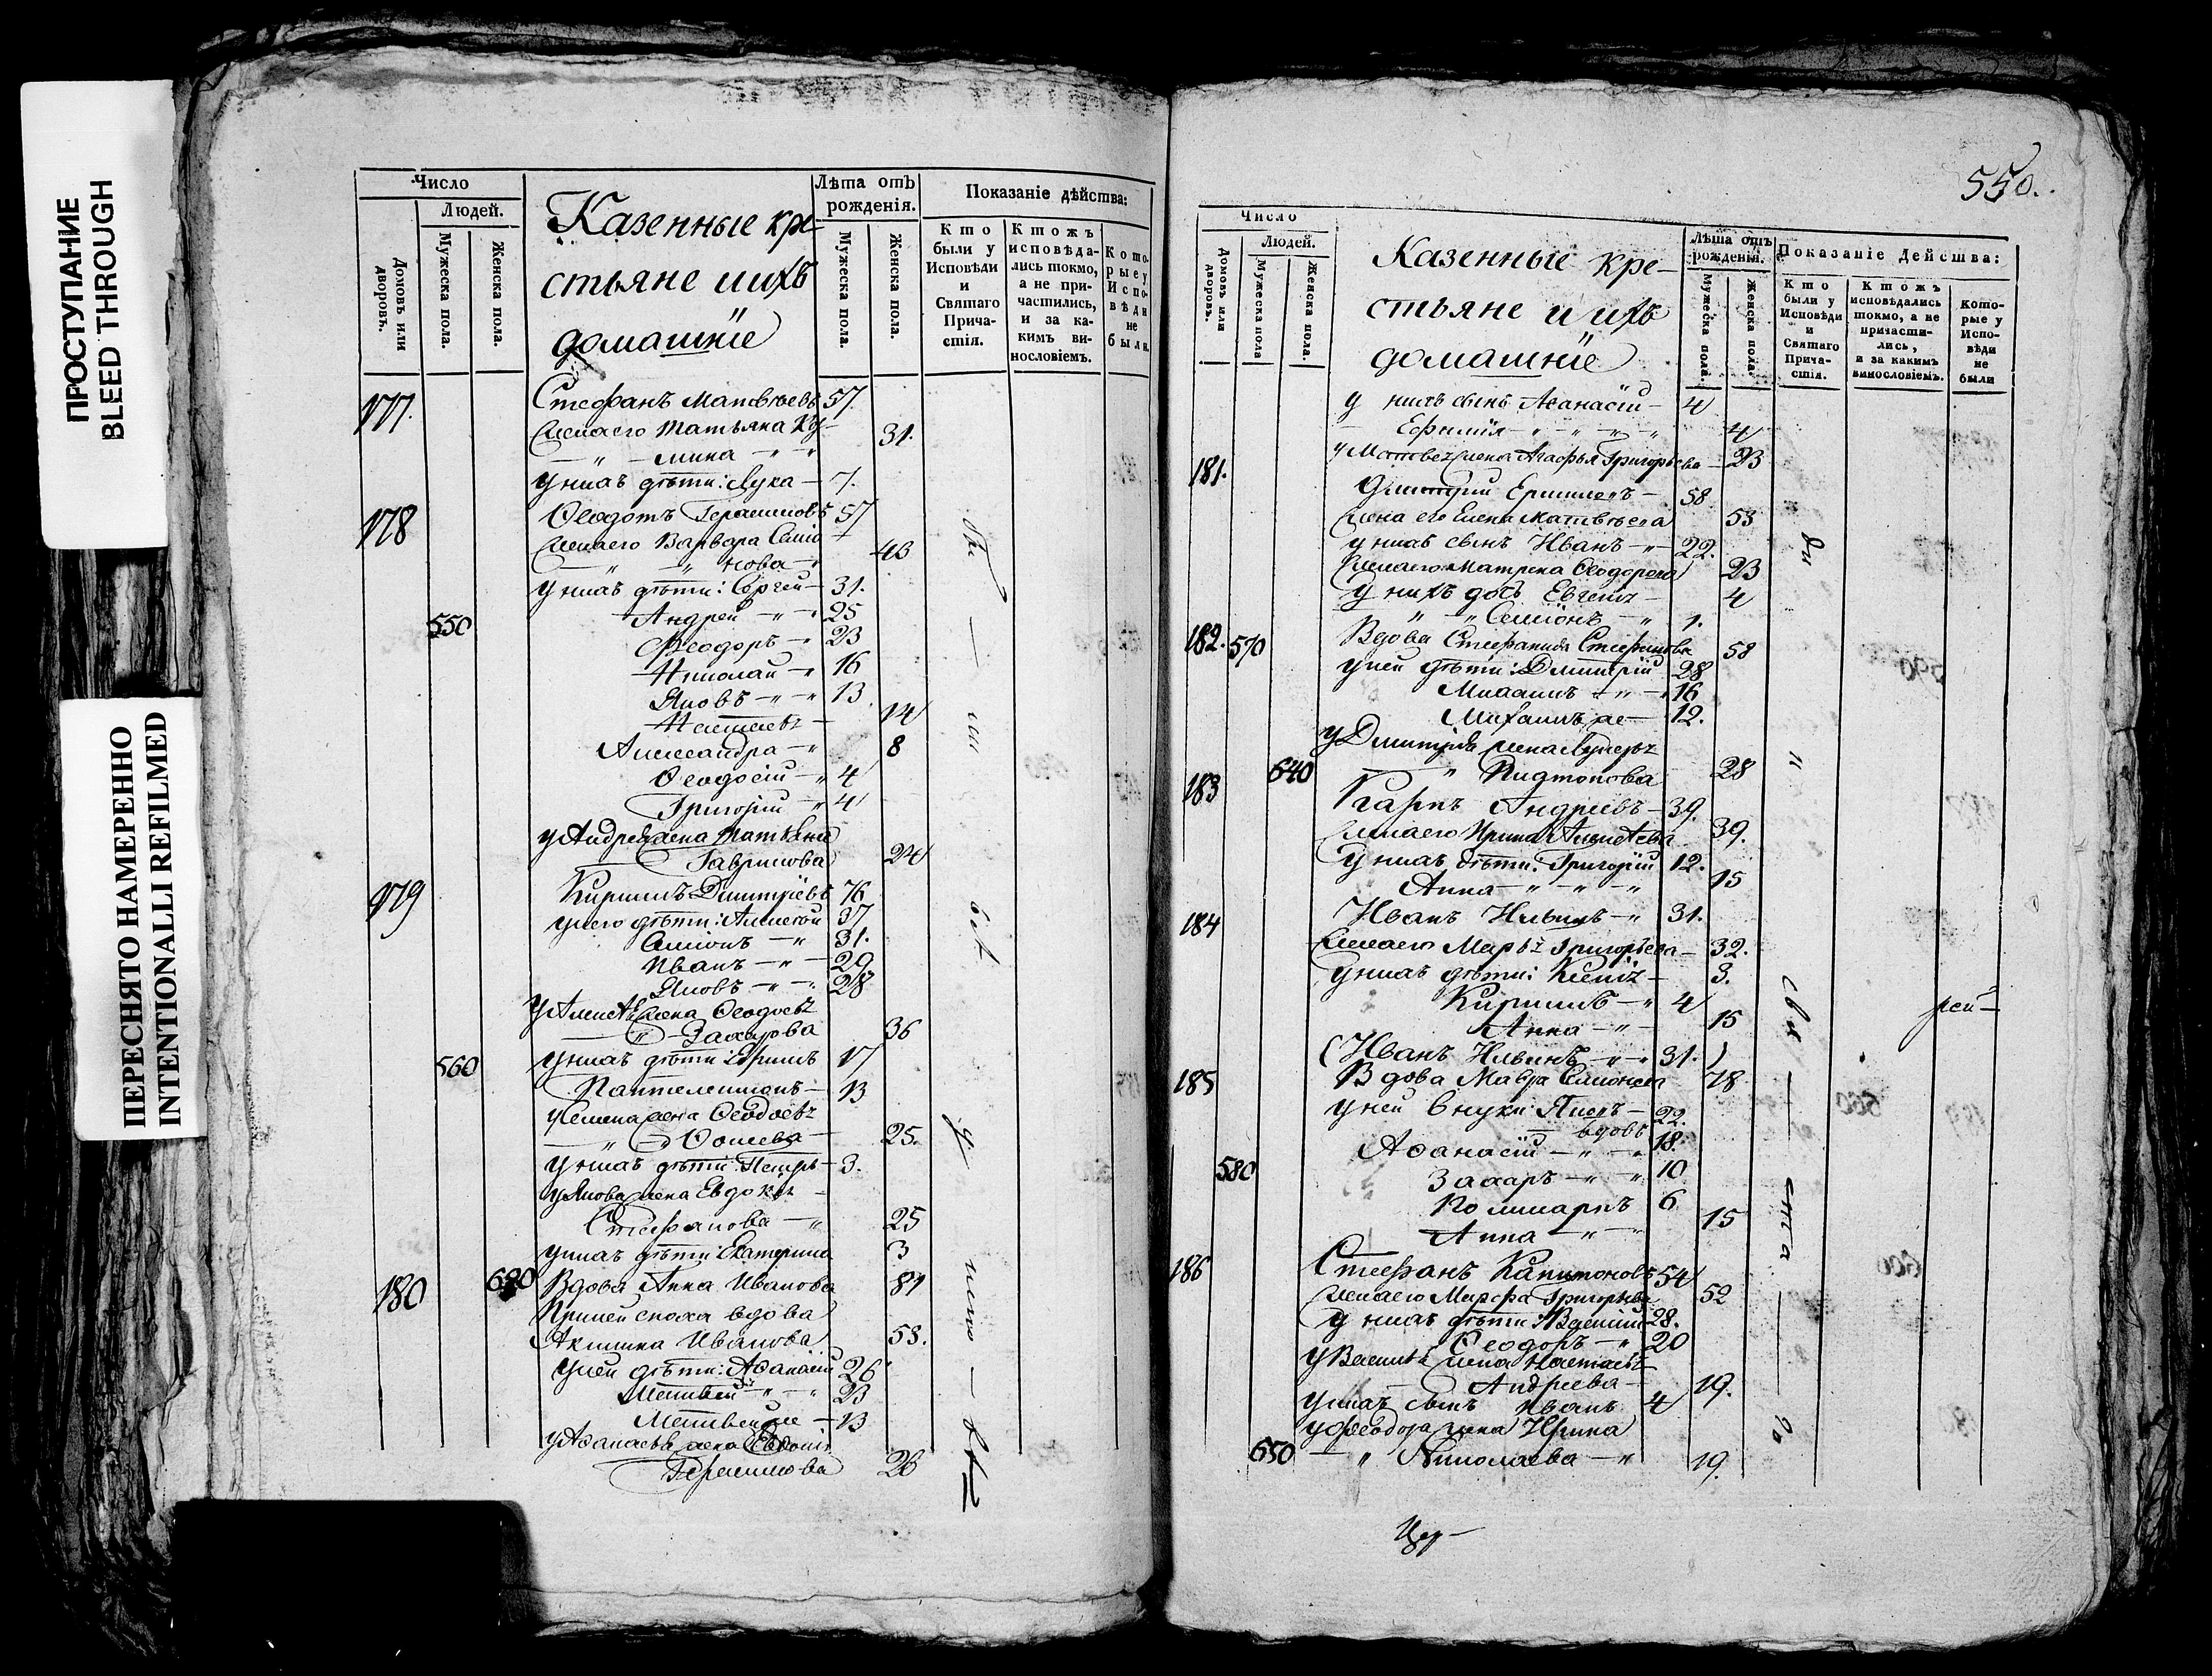 ПРОСТУПАНИЕ
BLEED THROUGH
ПЕРЕСНЯТО НАМЕРЕННО
INTENTIONALLI REFILMED
Число
Людей.
Домовъ или дворовъ.
Мужеска пола.
Женска пола.
Казенные кре-
стьяне и ихъ
домашніе
Лѣта отъ рожденія.
Мужеска пола.
Женска пола.
Показаніе дѣйства:
Кто были у Исповѣди и Святаго Прича-стія.
Ктожъ исповѣда-лись токмо, а не при-частились, и за ка-кимъ ви-нословіемъ.
Кото-рые у Испо-вѣди не были.
177. Стефанъ Матвѣевъ 57.
Жена его Татьяна Ку-
" мина 31.
У нихъ дѣти: Лука 7.
178 Ѳеодотъ Герасимовъ 57
Жена его Варвара Семіо
нова 43
У нихъ дѣти: Сергѣй 31.
550 Андрей 25
Феодоръ 23
Николай 16
Яковъ 13
14
Александра 8
Ѳеодосій 4
Григорій 4
У Андрея жена Татьяна
Гаврилова 24
179 Кирилъ Димитріевъ 76
У него дѣти: Алексѣй 37
Симіонъ 31.
Иванъ 29
Яковъ 28
У Алексѣя жена Ѳеодос
Захарова 36
560 У нихъ дѣти: Ефимъ 17
Пантелеимонъ 13
У Семена жена Ѳеодос
25.
У нихъ дѣти: Петръ 3.
У Якова жена Евдокія
Стефанова 25
У нихъ дѣти: Екатерина 3
180 630 Вдова Анна Иванова 81
При ней сноха вдова
Акилина Иванова 53.
У ней дѣти: Аѳанасій 26
Матвѣй 23
Матвѣй же 13
У Аѳанасія жена Евдокія
Герасимова 26
550.
Число
Людей.
Домовъ или дворовъ.
Мужеска пола
Женска пола.
Казенные кре-
стьяне и ихъ
домашніе
Лѣта отъ рожденія.
Мужеска пола.
Женска пола.
Показаніе Дейсмва:
Кто были у Исповѣди и Святаго Прича-стія.
Ктожъ исповѣдались токмо, а не причасти-лись, и за какимъ винословіемъ.
Кото-рые у Испо-вѣди не были
У нихъ сынъ Аѳанасій 4
Ефимія 4
У Матвея жена Агафья Григорьева 23
181. Димитрій 58
Жена его Елена Матвѣева 53
У нихъ сынъ Иванъ 22.
Жена его Матрена Ѳеодорова 23
У нихъ дочь Евгенія 4
Семіонъ 1.
182. 570 Вдова Стефанида Стефанова 58
У ней дѣти: Димитрій 28
Михаилъ 16
Михаилъ же 12.
У Димитрія жена
640 28
183 Карпъ Андреевъ 39.
Жена его Ирина Алексѣева 39.
У нихъ дѣти: Григорій 12.
Анна 15
184 Иванъ Ильинъ 31.
Жена его Марья Григорьева 32.
У нихъ дѣти: Ксенія 3.
Кирилъ 4
Анна 15
(Иванъ Ильинъ 31.)
185 Вдова Мавра Симонова 78
У ней внуки: 22.
вдовъ
Аѳанасій 18.
580 Захаръ 10
6
Анна 15
186 Стефанъ Капитоновъ 54
Жена его Марфа Григорьева 52
У нихъ дѣти: Василій 28.
Ѳеодоръ 20
У Василія жена Настасья
Андреева 19.
У нихъ сынъ Иванъ 4
У Феодора жена Ирина
650 " Николаева 19.